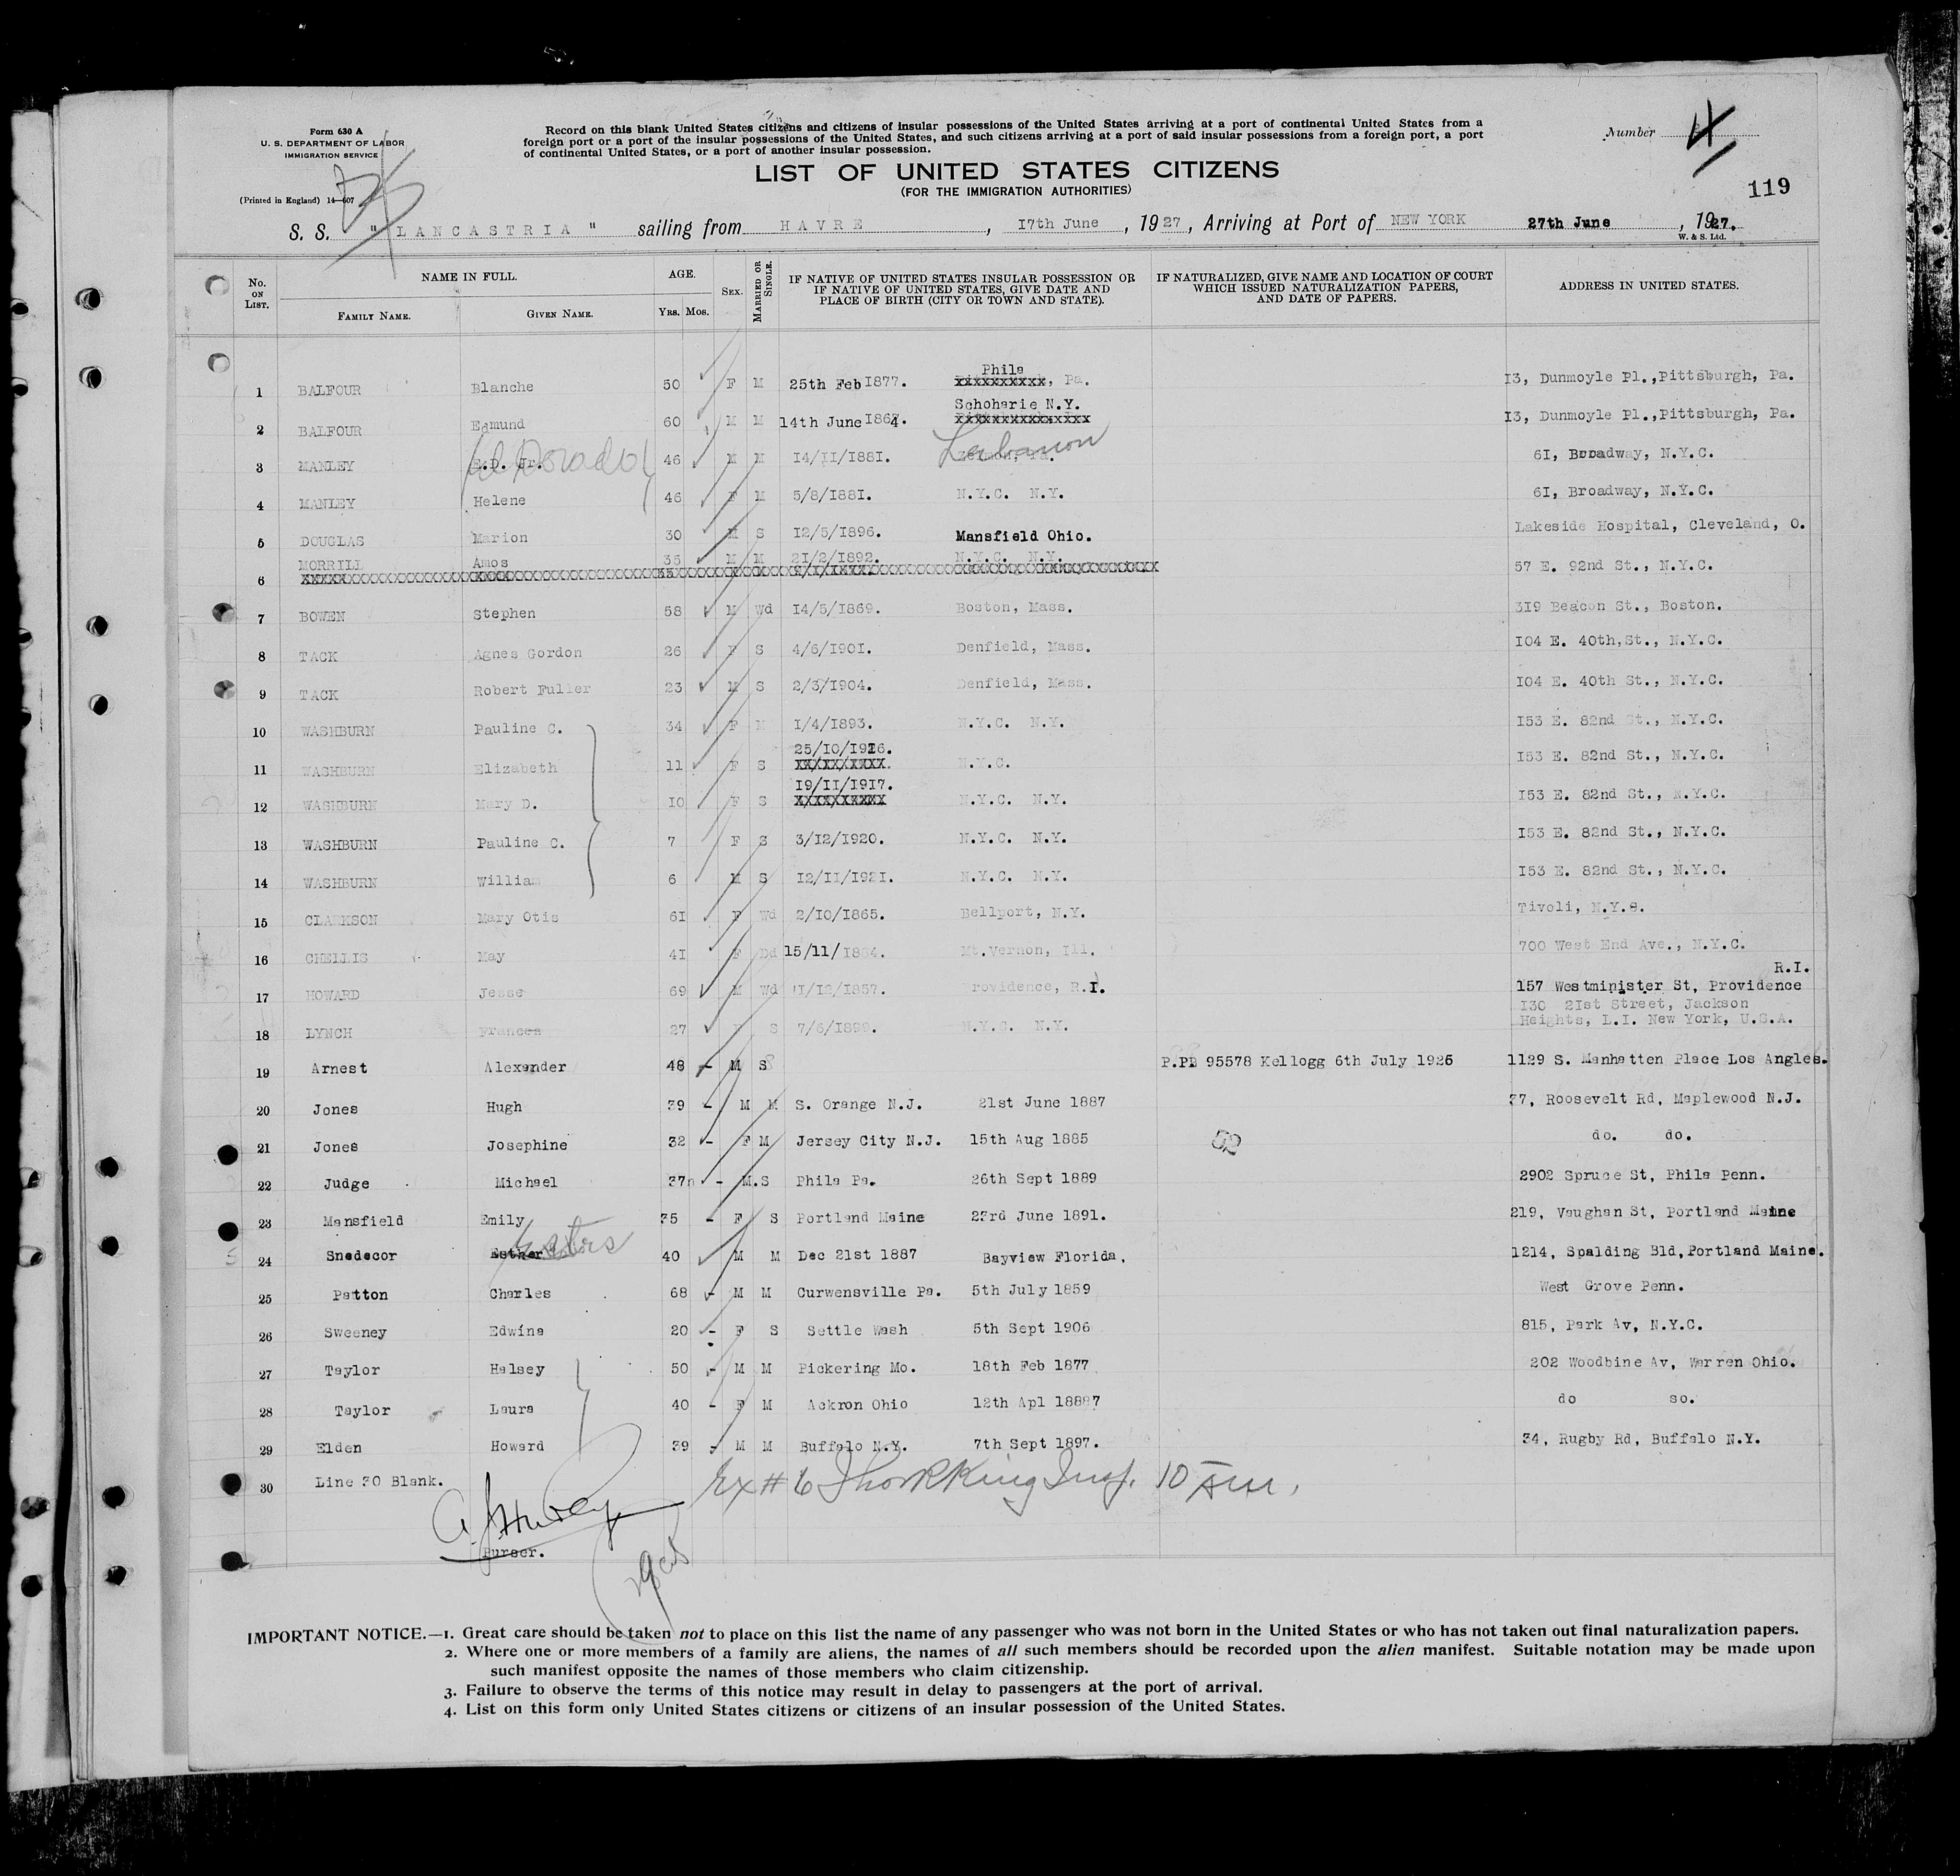 Form 630 A
U. S. DEPARTMENT OF LABOR
IMMIGRATION SERVICE
(Printed in England) 14—607
Record on this blank United States citizens and citizens of insular possessions of the United States arriving at a port of continental United States from a
foreign port or a port of the insular possessions of the United States, and such citizens arriving at a port of said insular possessions from a foreign port, a port
of continental United States, or a port of another insular possession.
Number 4
LIST OF UNITED STATES CITIZENS
(FOR THE IMMIGRATION AUTHORITIES)
119
S. S. " LANCASTRIA " sailing from HAVRE, 17th June, 1927, Arriving at Port of NEW YORK 27th June, 1927.
W. & S. Ltd.
No. ON LIST. NAME IN FULL. AGE. SEX. MARRIED OR SINGLE. IF NATIVE OF UNITED STATES INSULAR POSSESSION OR IF NATIVE OF UNITED STATES, GIVE DATE AND PLACE OF BIRTH (CITY OR TOWN AND STATE). IF NATURALIZED, GIVE NAME AND LOCATION OF COURT WHICH ISSUED NATURALIZATION PAPERS, AND DATE OF PAPERS. ADDRESS IN UNITED STATES.
FAMILY NAME. GIVEN NAME. YRS. MOS.
1 BALFOUR Blanche 50 F M 25th Feb 1877. Phila xxxxxxxxxx, Pa. 13, Dunmoyle Pl.,Pittsburgh, Pa.
2 BALFOUR Edmund 60 M M 14th June 1867. Schoharie N.Y. xxxxxxxxxxxxxxx 13, Dunmoyle Pl.,Pittsburgh, Pa.
3 MANLEY E.D. Jr. 46 M M 14/11/1881. Lebanon 61, Broadway, N.Y.C.
4 MANLEY Helene 46 F M 5/8/1881. N.Y.C. N.Y. 61, Broadway, N.Y.C.
5 DOUGLAS Marion 30 M S 12/5/1896. Mansfield Ohio. Lakeside Hospital, Cleveland, O.
6 MORRILL Amos 35 M M 21/2/1892. N.Y.C. N.Y. 57 E. 92nd St., N.Y.C.
7 BOWEN Stephen 58 M Wd 14/5/1869. Boston, Mass. 319 Beacon St., Boston.
8 TACK Agnes Gordon 26 F S 4/6/1901. Denfield, Mass. 104 E. 40th,St., N.Y.C.
9 TACK Robert Fuller 23 M S 2/3/1904. Denfield, Mass. 104 E. 40th St., N.Y.C.
10 WASHBURN Pauline C. 34 F M 1/4/1893. N.Y.C. N.Y. 153 E. 82nd St., N.Y.C.
11 WASHBURN Elizabeth 11 F S 25/10/1916. N.Y.C. 153 E. 82nd St., N.Y.C.
12 WASHBURN Mary D. 10 F S 19/11/1917. N.Y.C. N.Y. 153 E. 82nd St., N.Y.C.
13 WASHBURN Pauline C. 7 F S 3/12/1920. N.Y.C. N.Y. 153 E. 82nd St., N.Y.C.
14 WASHBURN William 6 M S 12/11/1921. N.Y.C. N.Y. 153 E. 82nd St., N.Y.C.
15 CLARKSON Mary Otis 61 F Wd 2/10/1865. Bellport, N.Y. Tivoli, N.Y.S.
16 CHELLIS May 41 F Dd 15/11/1884. Mt.Vernon, Ill. 700 West End Ave., N.Y.C.
17 HOWARD Jesse 69 M Wd 11/12/1857. Providence, R.I. 157 Westminister St, Providence R.I.
18 LYNCH Frances 27 F S 7/6/1899. N.Y.C. N.Y. 130 21st Street, Jackson Heights, L.I. New York, U.S.A.
19 Arnest Alexander 48 M S P.PB 95578 Kellogg 6th July 1926 1129 S. Manhatten Place Los Angles.
20 Jones Hugh 39 M M S. Orange N.J. 21st June 1887 37, Roosevelt Rd, Maplewood N.J.
21 Jones Josephine 32 F M Jersey City N.J. 15th Aug 1885 do. do.
22 Judge Michael 37 M.S Phila Pa. 26th Sept 1889 2902 Spruce St, Phila Penn.
23 Mansfield Emily 35 F S Portland Maine 23rd June 1891. 219, Vaughan St, Portland Maine
24 Snedecor Esther 40 M M Dec 21st 1887 Bayview Florida. 1214, Spalding Bld,Portland Maine.
25 Patton Charles 68 M M Curwensville Pa. 5th July 1859 West Grove Penn.
26 Sweeney Edwina 20 F S Settle Wash 5th Sept 1906 815, Park Av, N.Y.C.
27 Taylor Halsey 50 M M Pickering Mo. 18th Feb 1877 202 Woodbine Av, Warren Ohio.
28 Taylor Laura 40 F M Ackron Ohio 12th Apl 18887 do so.
29 Elden Howard 39 M M Buffalo N.Y. 7th Sept 1897. 34, Rugby Rd, Buffalo N.Y.
30 Line 30 Blank.
Ex # 6 King Insp. 10 am.
Purser.
IMPORTANT NOTICE.—1. Great care should be taken not to place on this list the name of any passenger who was not born in the United States or who has not taken out final naturalization papers.
2. Where one or more members of a family are aliens, the names of all such members should be recorded upon the alien manifest. Suitable notation may be made upon
such manifest opposite the names of those members who claim citizenship.
3. Failure to observe the terms of this notice may result in delay to passengers at the port of arrival.
4. List on this form only United States citizens or citizens of an insular possession of the United States.